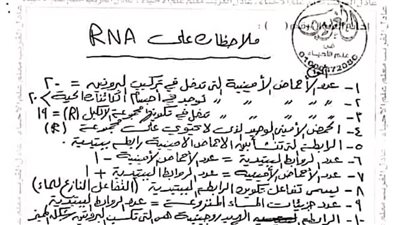 ملاحظات على RNA
١ - عدد الأحماض الأمينية التى تدخل فى تركيب البروتين = ٢٠
٢ - " " " " توجد فى أجسام الكائنات الحية > ٢٠
٣ - " " " " تدخل فى تكوينها مجموعة الألكيل (R) = ١٩
٤ - الحمض الأمينى الوحيد الذى لا يحتوى على مجموعة (R)
٥ - الرابطة التى تنشأ بين الأحماض الأمينية رابطة ببتيدية
٦ - عدد الروابط الببتيدية = عدد الأحماض الأمينية - ١
٧ - عدد الأحماض الأمينية = عدد الروابط الببتيدية + ١
٨ - يسمى تفاعل تكوين الرابطة الببتيدية (التفاعل النازع للماء)
٩ - عدد جزيئات الماء المنزوعة = عدد الروابط الببتيدية
١٠ - الرابطة الهيدروجينية هى التى تكسب البروتين شكله المميز